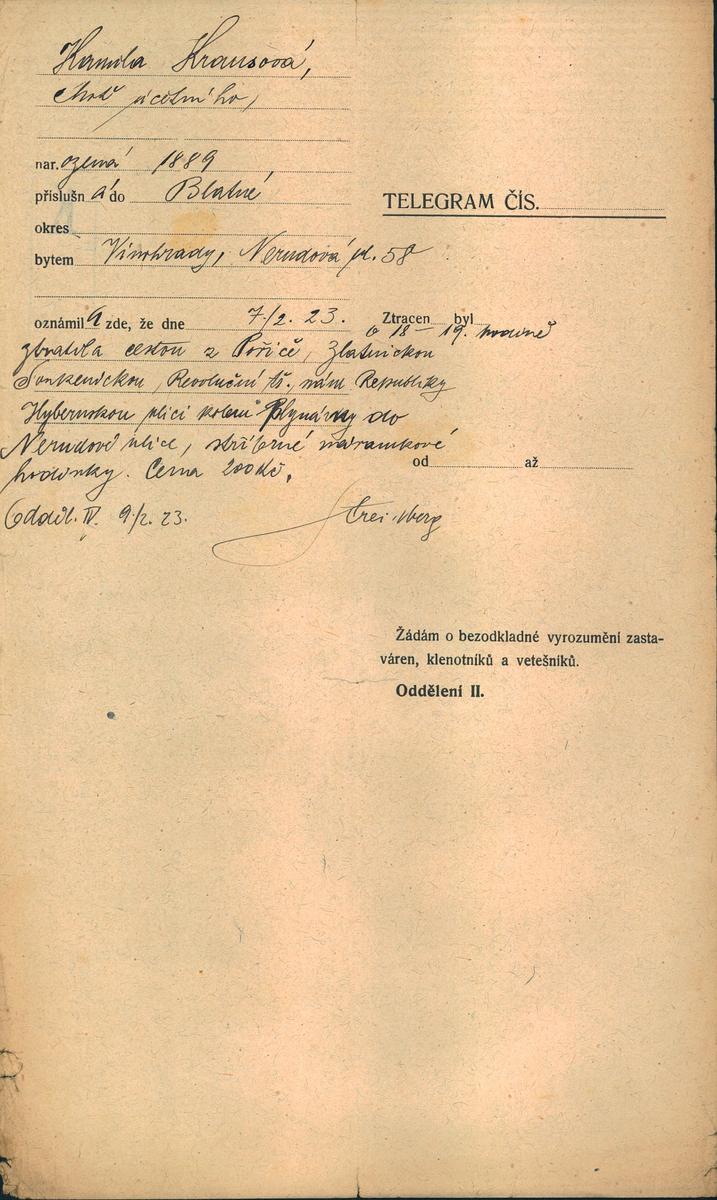 Kamila Krausová,
choť účetního,
nar. ozená 1889
příslušn á do Blatné
okres
bytem Vinohrady, Nerudová ul. 58
TELEGRAM ČÍS.
oznámil a zde, že dne 7/2. 23. Ztracen byl
o 18 – 19. hodině
ztratila cestou z Poříče, Zlatnickou
Soukenickou, Revoluční tř., nám Republiky
Hybernskou ulicí kolem Plynárny do
Nerudové ulice, stříbrné náramkové
hodinky. Cena 200 Kč.
od až
Odděl. IV. 9/2. 23.
Žádám o bezodkladné vyrozumění zasta-
váren, klenotníků a vetešníků.
Oddělení II.